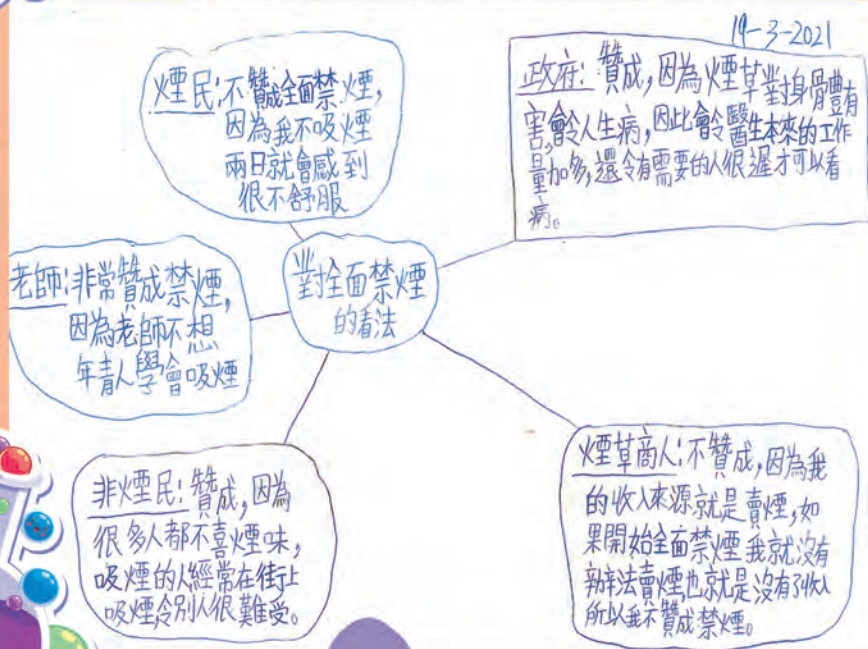 19-3-2021
煙民:不贊成全面禁煙,
因為我不吸煙
兩日就會感到
很不舒服
政府:贊成,因為煙草對身體有
害,會令人生病,因此會令醫生本來的工作
量加多,還令有需要的人很遲才可以看
病。
老師:非常贊成禁煙,
因為老師不想
年青人學會吸煙
對全面禁煙
的看法
非煙民:贊成,因為
很多人都不喜煙味,
吸煙的人經常在街上
吸煙,令別人很難受。
煙草商人:不贊成,因為我
的收入來源就是賣煙,如
果開始全面禁煙我就沒有
辦法賣煙,也就是沒有了收入
所以我不贊成禁煙。